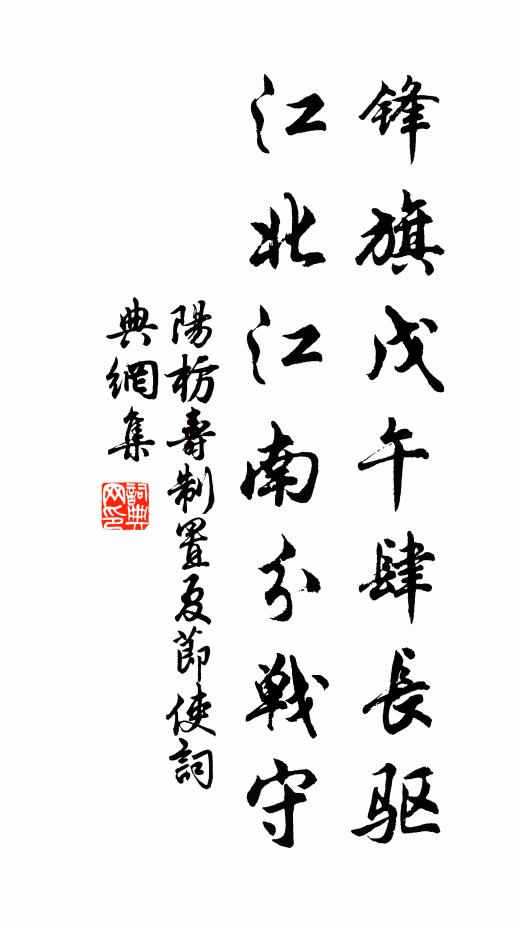 鋒旗戊午肆長驱
江北江南分戦守
陽枋壽制置夏節使詞
典網集
詞典网印